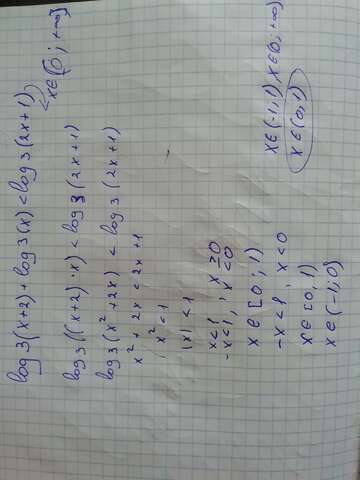 log3(x+2)+log3(x) < log3(2x+1)
x∈[0; +∞]
log3((x+2)·x) < log3(2x+1)
log3(x²+2x) < log3(2x+1)
x²+2x < 2x+1
x² < 1
|x| < 1
x<1, x≥0
-x<1, x<0
x∈[0; 1)
-x<1; x<0
x∈[0, 1)
x∈(-1; 0)
x∈(-1, 1), x∈(0, +∞)
x∈(0, 1)